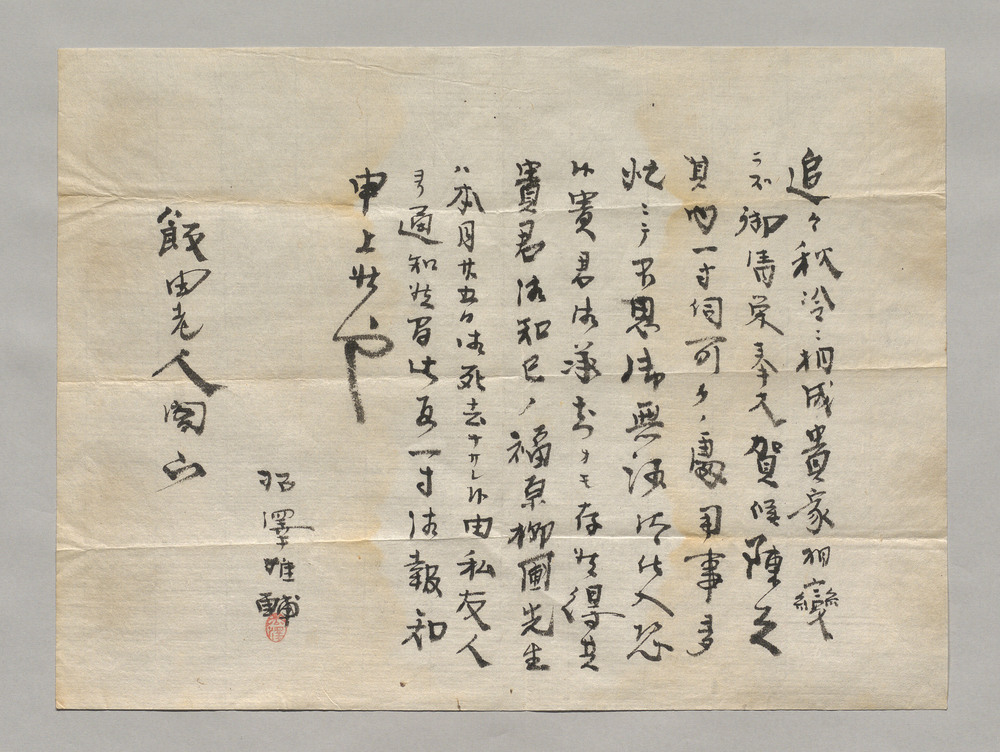 追々秋冷ニ相成貴家相變
ニ不御清栄奉大賀候陳者
其内一寸伺可ク之處用事多
忙ニテ不思御無沙汰仕入恐
候貴君御承知ナモ存候得共
貴君御知己ノ福原柳圃先生
ハ本月廿五日御死去ナサレ候由私友人
ヨリ通知候間此段一寸御報知
申上候也
飯田老人閣下
澤雄輔